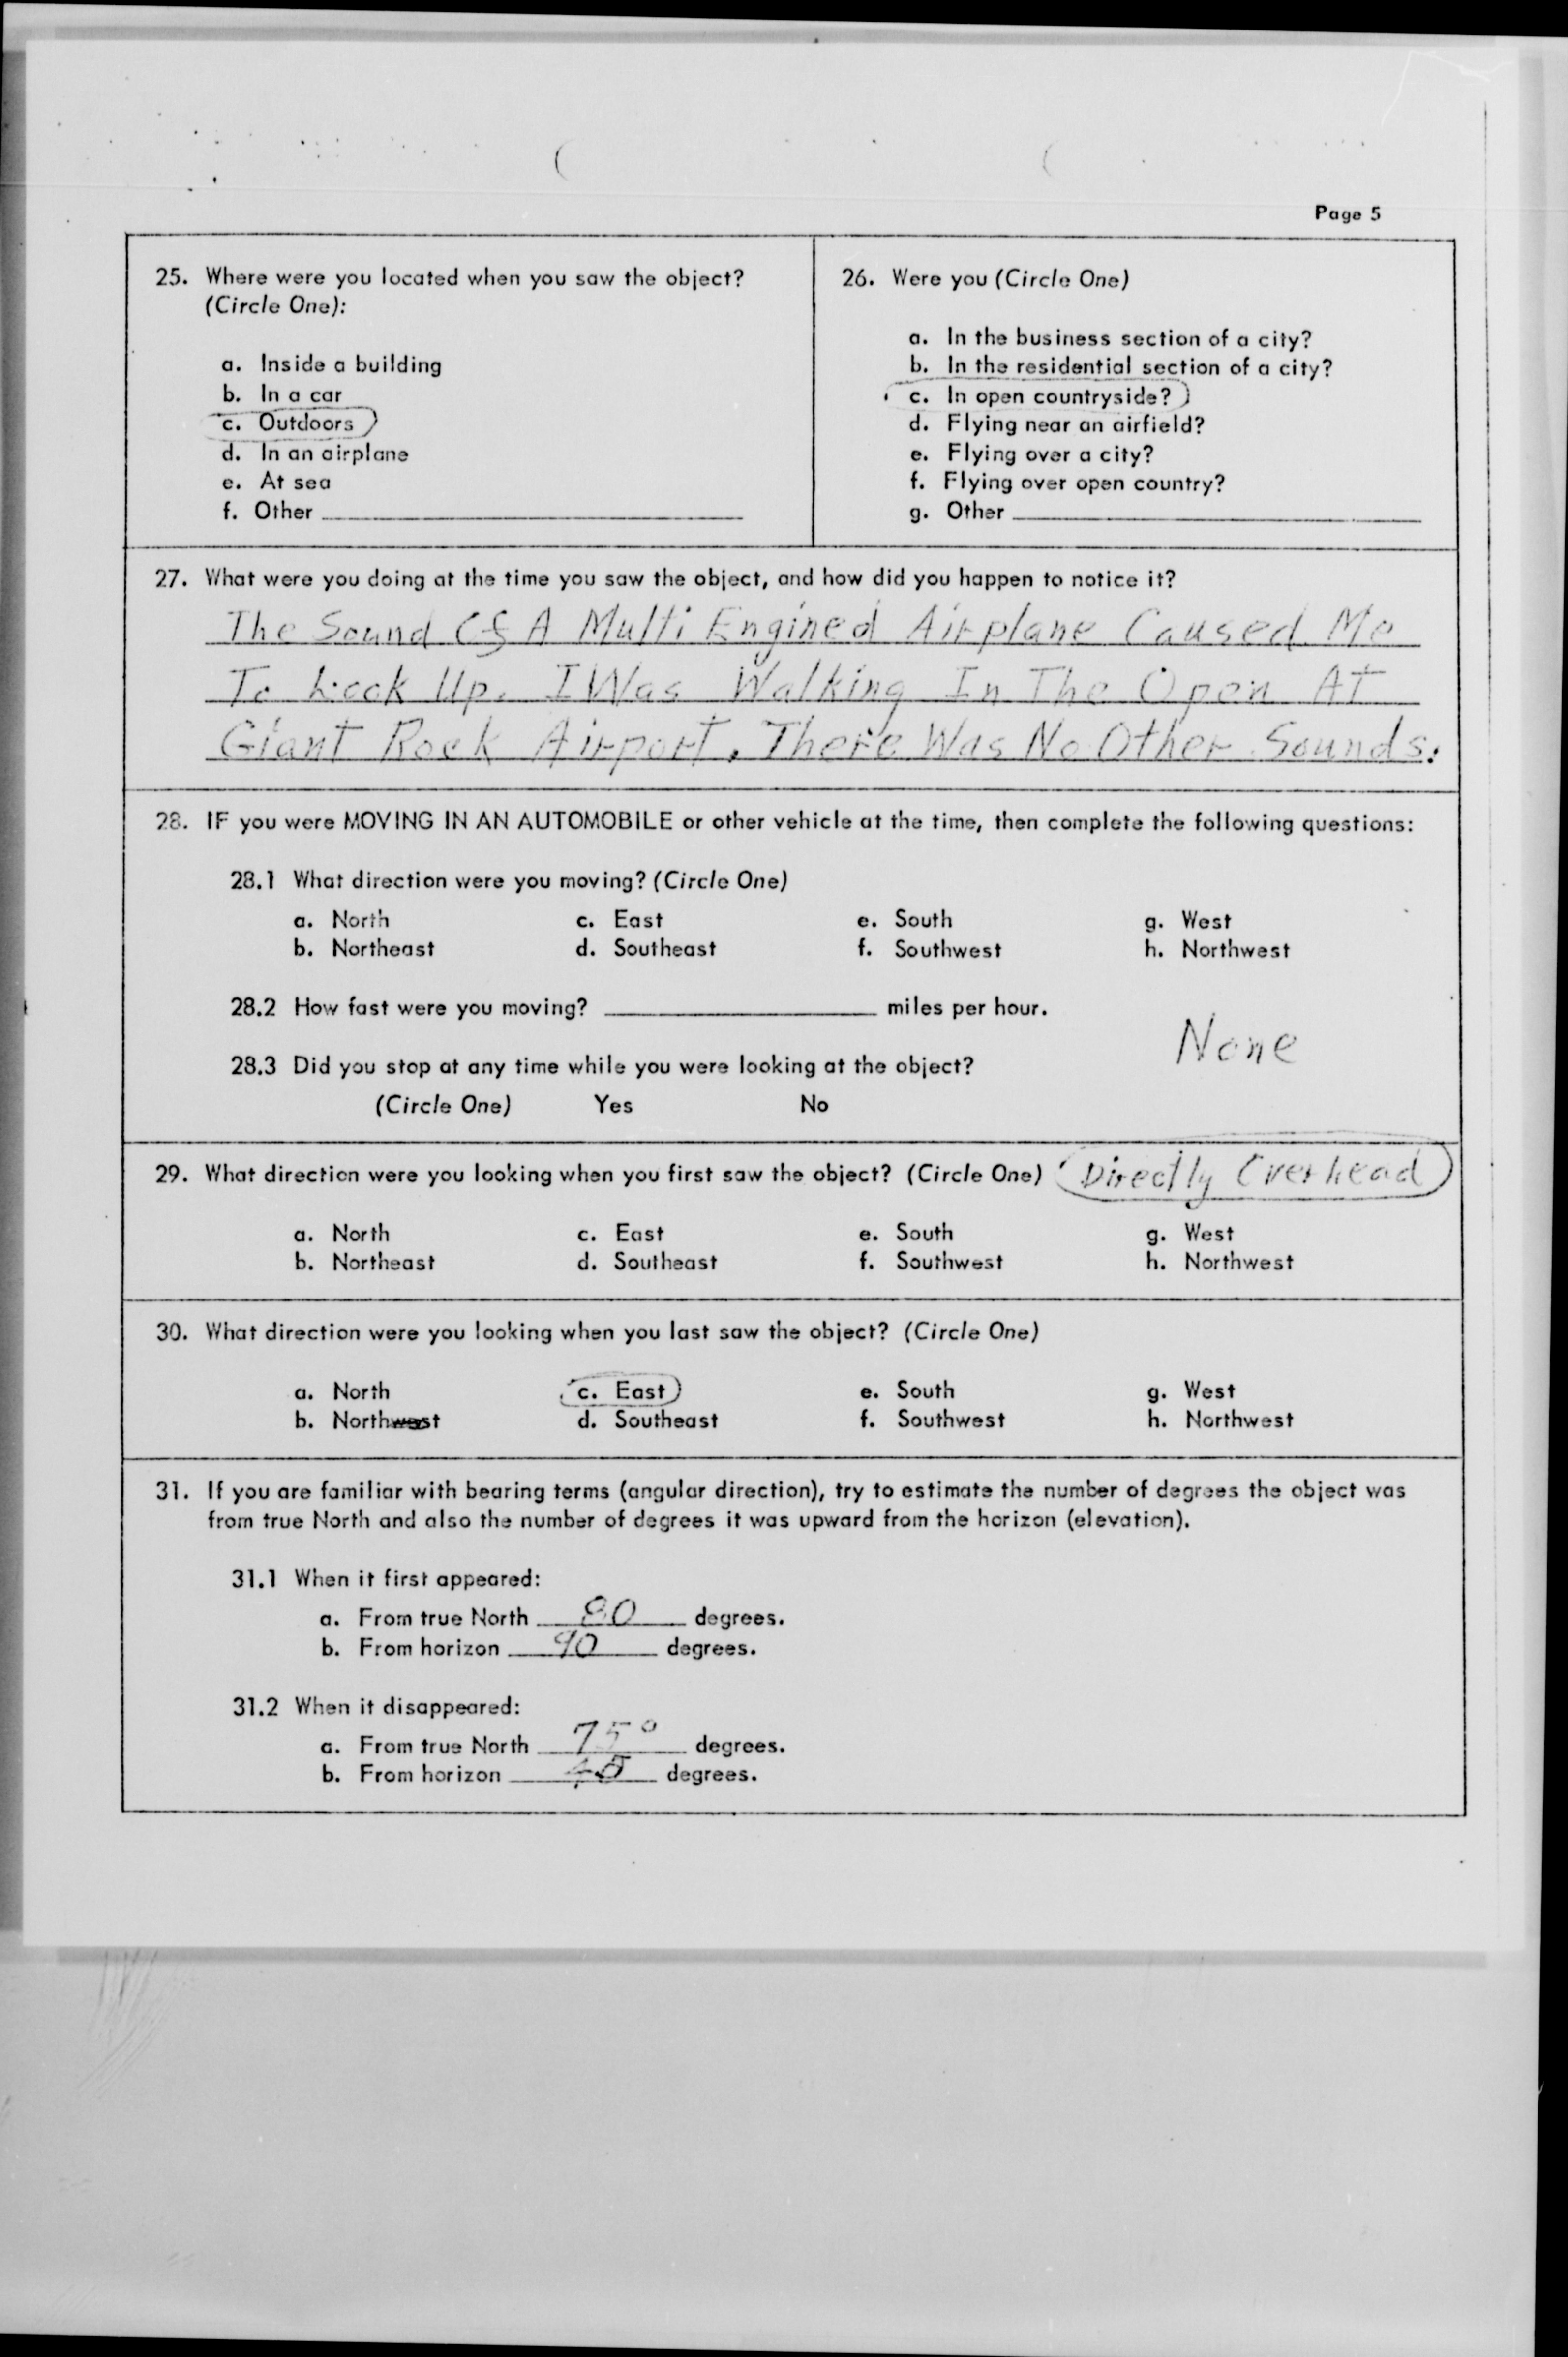 Page 5
25. Where were you located when you saw the object?
(Circle One):
a. Inside a building
b. In a car
c. Outdoors
d. In an airplane
e. At sea
f. Other
26. Were you (Circle One)
a. In the business section of a city?
b. In the residential section of a city?
c. In open countryside?
d. Flying near an airfield?
e. Flying over a city?
f. Flying over open country?
g. Other
27. What were you doing at the time you saw the object, and how did you happen to notice it?
The Sound Of A Multi Engined Airplane Caused Me
To Look Up. I Was Walking In The Open At
Giant Rock Airport. There Was No Other Sounds.
28. IF you were MOVING IN AN AUTOMOBILE or other vehicle at the time, then complete the following questions:
28.1 What direction were you moving? (Circle One)
a. North c. East e. South g. West
b. Northeast d. Southeast f. Southwest h. Northwest
28.2 How fast were you moving? miles per hour.
None
28.3 Did you stop at any time while you were looking at the object?
(Circle One) Yes No
29. What direction were you looking when you first saw the object? (Circle One) Directly Overhead
a. North c. East e. South g. West
b. Northeast d. Southeast f. Southwest h. Northwest
30. What direction were you looking when you last saw the object? (Circle One)
a. North c. East e. South g. West
b. Northwest d. Southeast f. Southwest h. Northwest
31. If you are familiar with bearing terms (angular direction), try to estimate the number of degrees the object was
from true North and also the number of degrees it was upward from the horizon (elevation).
31.1 When it first appeared:
a. From true North 80 degrees.
b. From horizon 90 degrees.
31.2 When it disappeared:
a. From true North 75° degrees.
b. From horizon degrees.